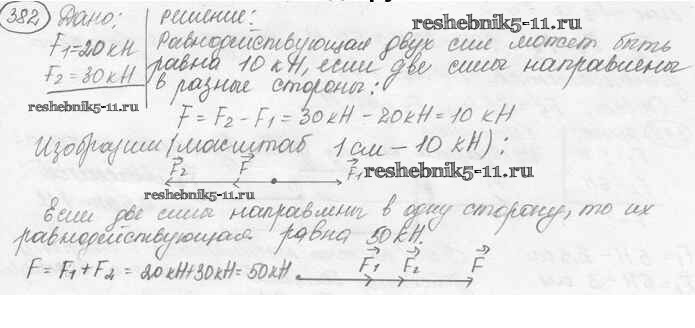 382 Дано: Решение:
reshebnik5-11.ru
F₁=20кН
F₂=30кН
reshebnik5-11.ru
Равнодействующая двух сил может быть
равна 10 кН, если две силы направлены
в разные стороны:
F = F₂ - F₁ = 30кН - 20кН = 10 кН
Изобразим (масштаб 1см – 10 кН):
F₂ F F₁
reshebnik5-11.ru
reshebnik5-11.ru
Если две силы направлены в одну сторону, то их
равнодействующая равна 50кН.
F = F₁ + F₂ = 20кН+30кН= 50кН F₁ F₂ F